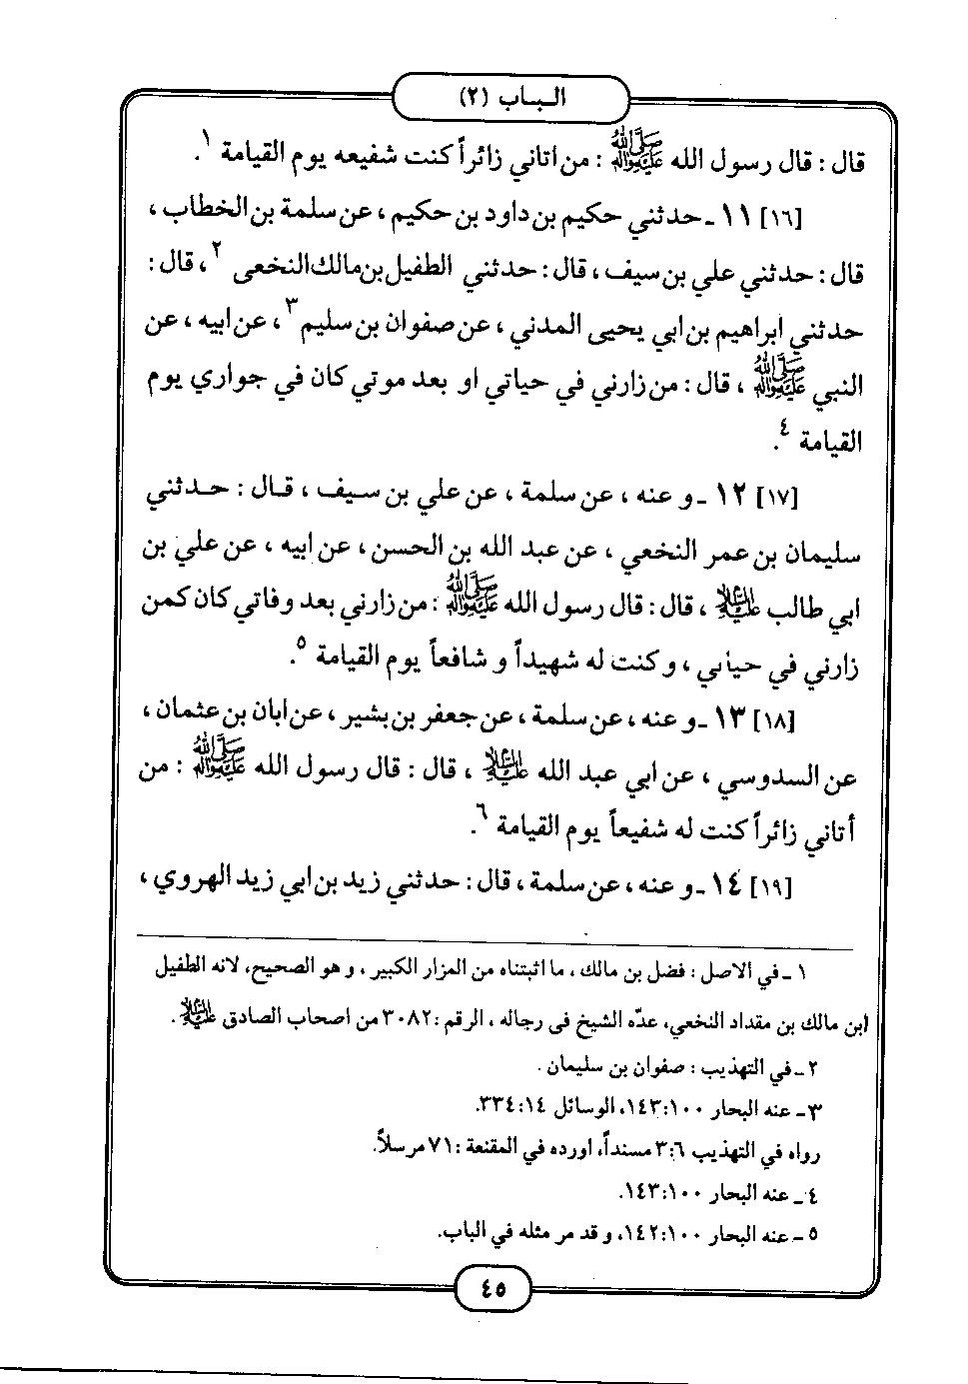 الباب (٢)
قال : قال رسول الله ﷺ : من اتاني زائراً كنت شفيعه يوم القيامة ١.
[١٦] ١١ ـ حدثني حكيم بن داود بن حكيم ، عن سلمة بن الخطاب ،
قال : حدثني علي بن سيف ، قال : حدثني الطفيل بن مالك النخعى ٢ ، قال :
حدثني ابراهيم بن ابي يحيى المدني ، عن صفوان بن سليم ٣ ، عن ابيه ، عن
النبي ﷺ ، قال : من زارني في حياتي او بعد موتي كان في جواري يوم
القيامة ٤.
[١٧] ١٢ ـ و عنه ، عن سلمة ، عن علي بن سيف ، قال : حدثني
سليمان بن عمر النخعي ، عن عبد الله بن الحسن ، عن ابيه ، عن علي بن
ابي طالب عليه السلام ، قال : قال رسول الله ﷺ : من زارني بعد وفاتي كان كمن
زارني في حياتي ، و كنت له شهيداً و شافعاً يوم القيامة ٥.
[١٨] ١٣ ـ و عنه ، عن سلمة ، عن جعفر بن بشير ، عن ابان بن عثمان ،
عن السدوسي ، عن ابي عبد الله عليه السلام ، قال : قال رسول الله ﷺ : من
أتاني زائراً كنت له شفيعاً يوم القيامة ٦.
[١٩] ١٤ ـ و عنه ، عن سلمة ، قال : حدثني زيد بن ابي زيد الهروي ،
١ ـ في الاصل : فضل بن مالك ، ما اثبتناه من المزار الكبير ، و هو الصحيح، لانه الطفيل
ابن مالك بن مقداد النخعي، عدّه الشيخ فى رجاله ، الرقم :٣٠٨٢ من اصحاب الصادق عليه السلام .
٢ ـ في التهذيب : صفوان بن سليمان .
٣ ـ عنه البحار ١٤٣:١٠٠، الوسائل ٣٣٤:١٤.
رواه في التهذيب ٣:٦ مسنداً، اورده في المقنعة :٧١ مرسلاً.
٤ ـ عنه البحار ١٤٣:١٠٠.
٥ ـ عنه البحار ١٤٢:١٠٠، و قد مر مثله في الباب.
٤٥